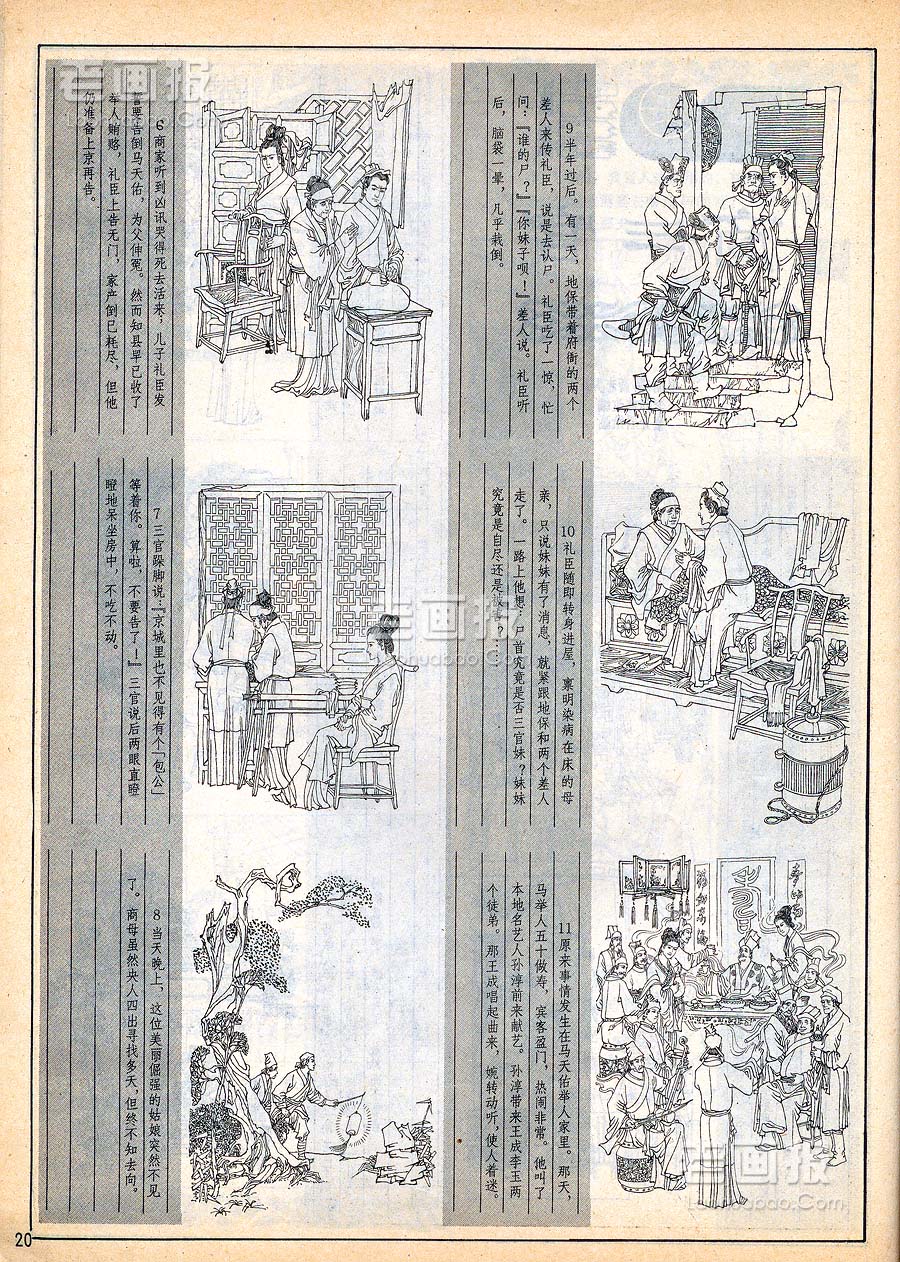 6商家听到凶讯哭得死去活来；儿子礼臣发
誓要告倒马天佑，为父伸冤。然而知县早已收了
举人贿赂，礼臣上告无门，家产倒已耗尽，但他
仍准备上京再告。
7三官跺脚说：『京城里也不见得有个「包公」
等着你。算啦，不要告了！』三官说后两眼直瞪
瞪地呆坐房中，不吃不动。
8当天晚上，这位美丽倔强的姑娘突然不见
了。商母虽然央人四出寻找多天，但终不知去向。
9半年过后。有一天，地保带着府衙的两个
差人来传礼臣，说是去认尸。礼臣吃了一惊，忙
问：『谁的尸？』『你妹子呗！』差人说。礼臣听
后，脑袋一晕，几乎栽倒。
10礼臣随即转身进屋，禀明染病在床的母
亲，只说妹妹有了消息，就紧跟地保和两个差人
走了。一路上他想：尸首究竟是否三官妹？妹妹
究竟是自尽还是被害？……
11原来事情发生在马天佑举人家里。那天，
马举人五十做寿，宾客盈门，热闹非常。他叫了
本地名艺人孙淳前来献艺。孙淳带来王成李玉两
个徒弟。那王成唱起曲来，婉转动听，使人着迷。
20
老画报
Laohuabao.Com
老画报
Laohuabao.Com
老画报
Laohuabao.Com